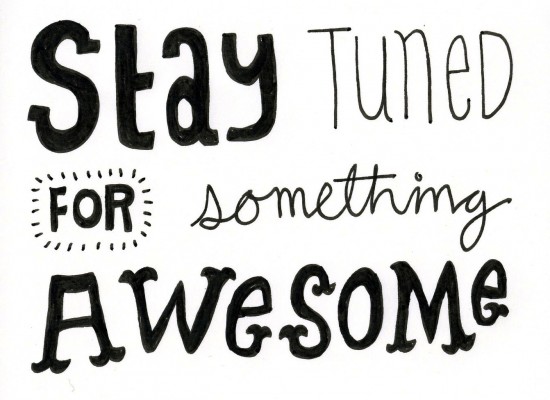 Stay TUneD
FOR something
AWeSOMe